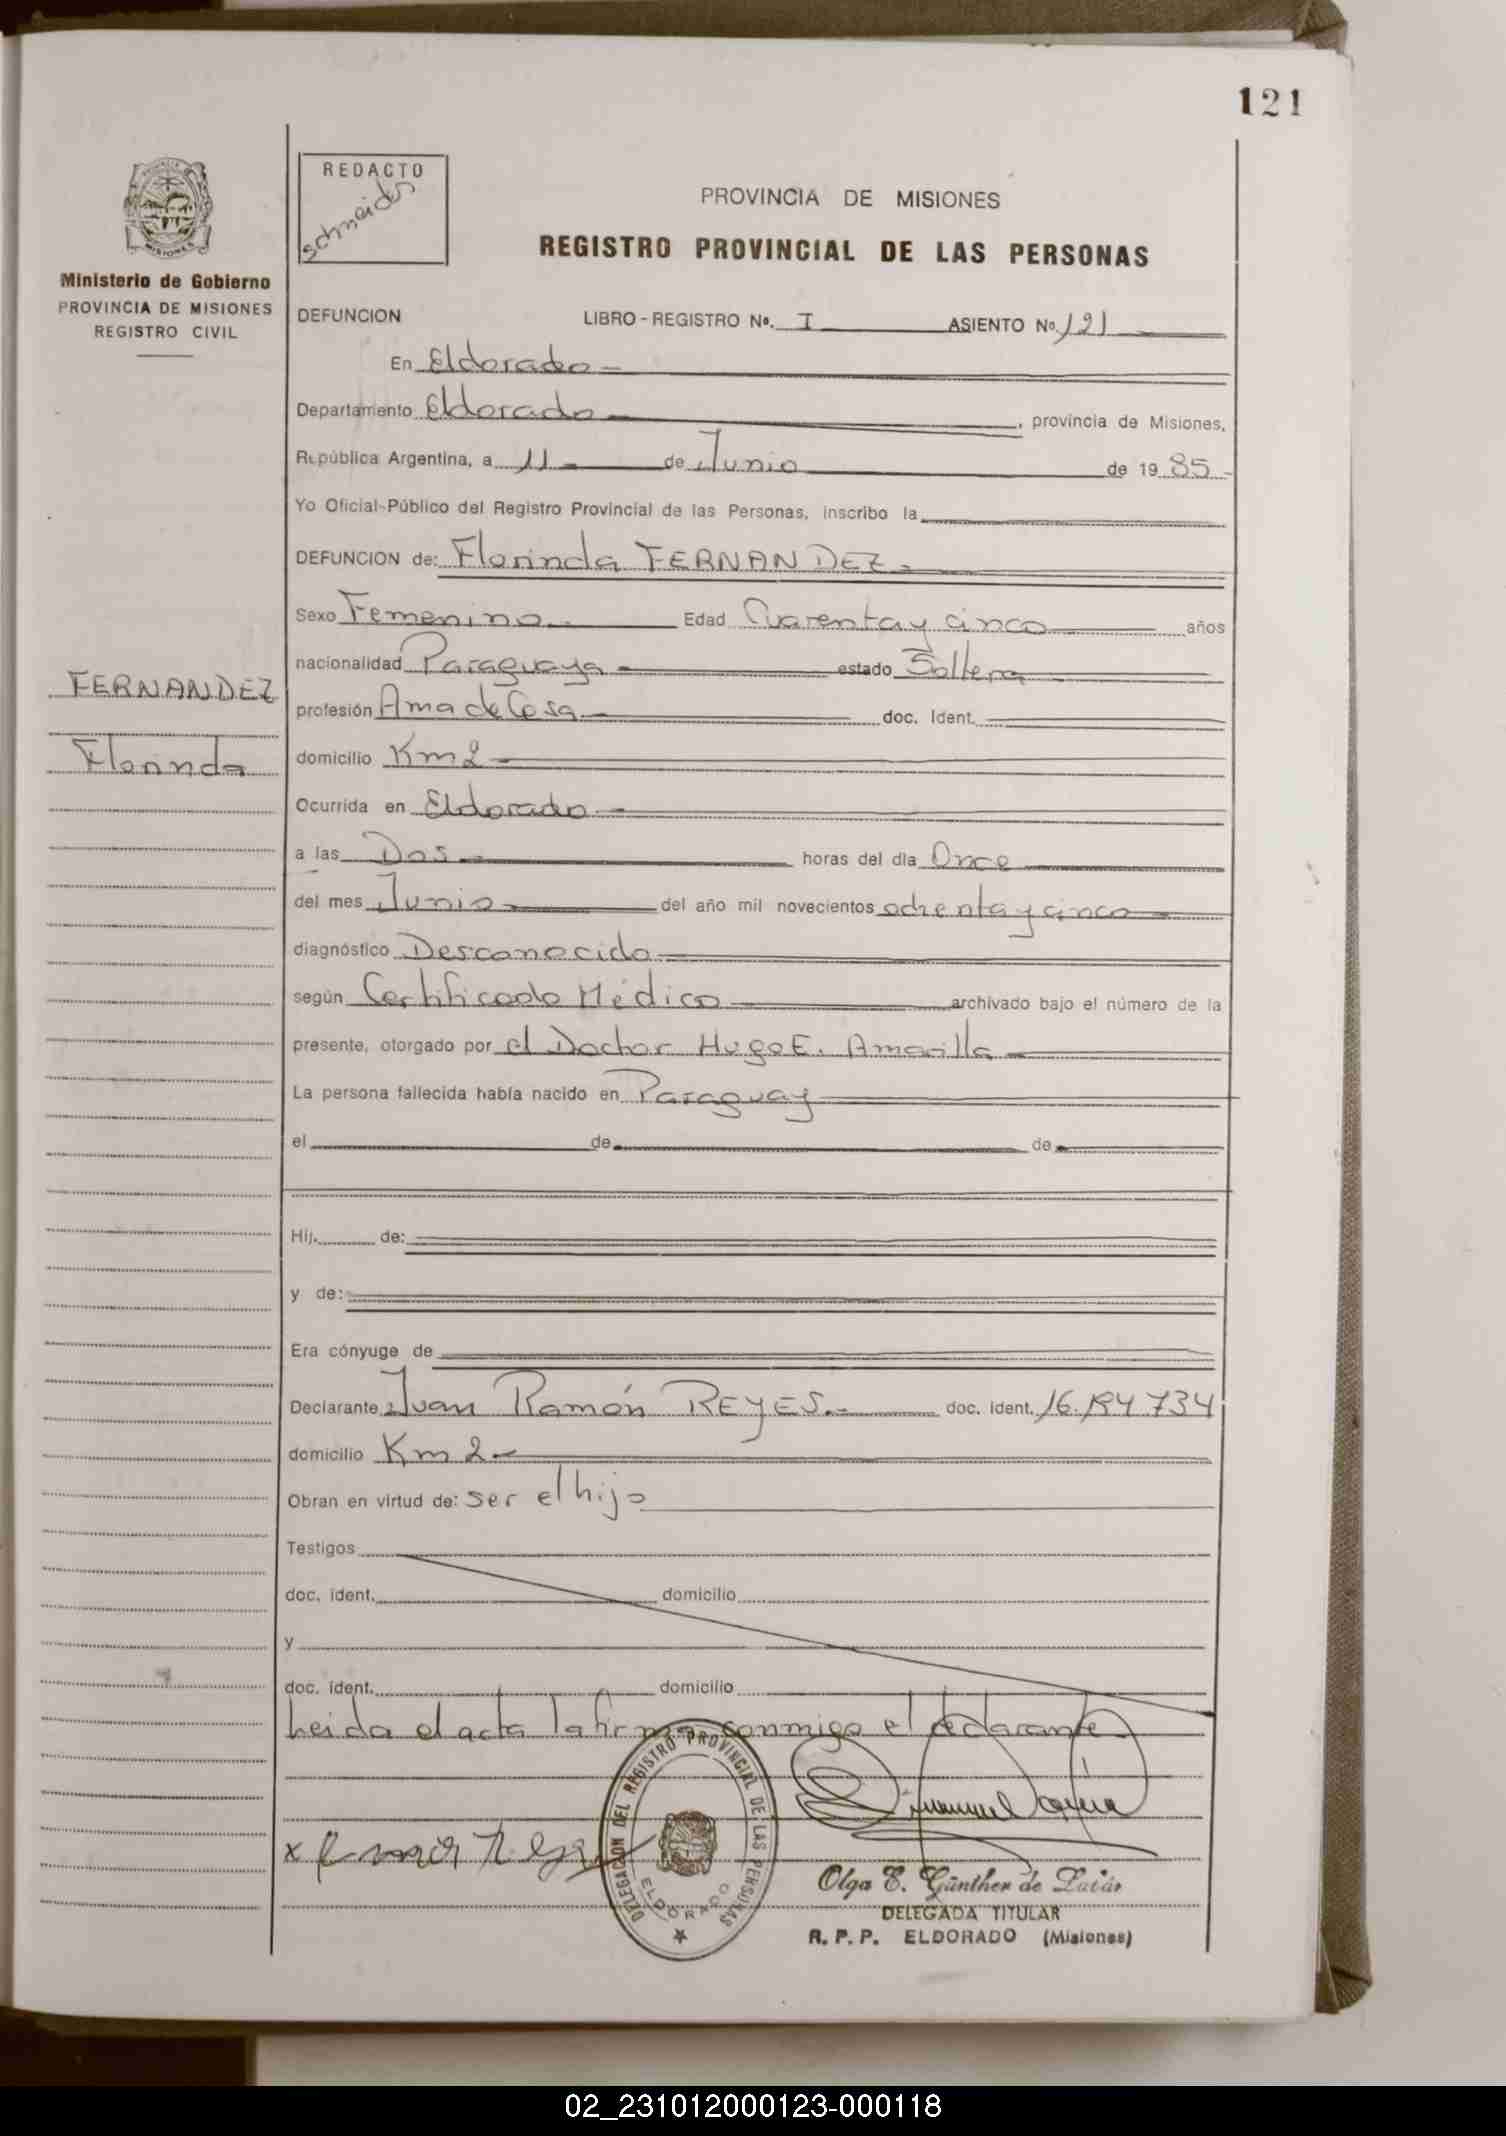 121
REDACTO
schneider
PROVINCIA DE MISIONES
REGISTRO PROVINCIAL DE LAS PERSONAS
MISIONES
Ministerio de Gobierno
PROVINCIA DE MISIONES
REGISTRO CIVIL
DEFUNCION LIBRO - REGISTRO Nº. I ASIENTO Nº 121
En Eldorado
Departamento Eldorado , provincia de Misiones,
República Argentina, a 11 de Junio de 1985
Yo Oficial-Público del Registro Provincial de las Personas, inscribo la
DEFUNCION de: Florinda FERNANDEZ
Sexo Femenino Edad Cuarenta y cinco años
nacionalidad Paraguaya estado Soltera
FERNANDEZ
profesión Ama de Casa doc. Ident.
Florinda
domicilio Km 2
Ocurrida en Eldorado
a las Dos horas del día Once
del mes Junio del año mil novecientos ochenta y cinco
diagnóstico Desconocido
según Certificado Médico archivado bajo el número de la
presente, otorgado por el Doctor Hugo E. Amarilla
La persona fallecida había nacido en Paraguay
el de de
Hij. de:
y de:
Era cónyuge de
Declarante Juan Ramón REYES. doc. ident. 16.194.734
domicilio Km 2
Obran en virtud de: ser el hijo
Testigos
doc. ident. domicilio
y
doc. ident. domicilio
Leida el acta la firma conmigo el declarante
DELEGACION DEL REGISTRO PROVINCIAL DE LAS PERSONAS
ELDORADO
x Ramón Reyes
Olga E. Günther de
DELEGADA TITULAR
R. P. P. ELDORADO (Misiones)
02_231012000123-000118